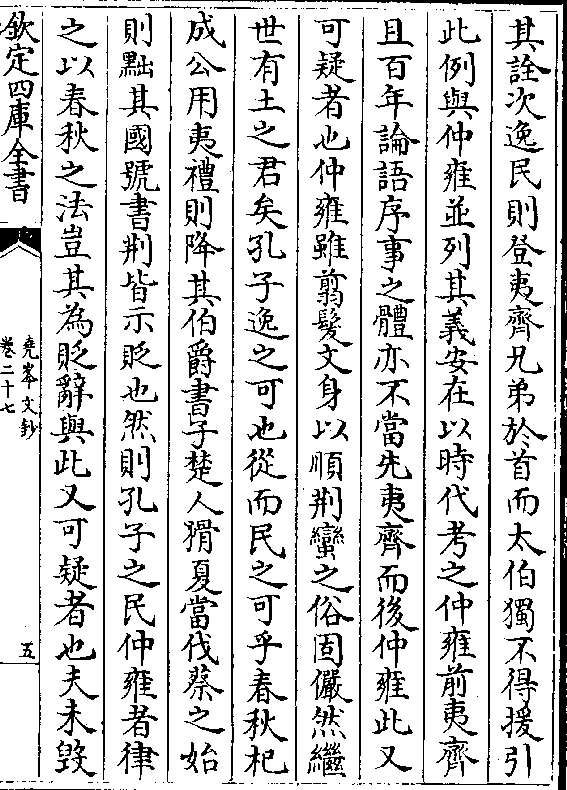 其詮次逸民則登夷齊兄弟於首而太伯獨不得援引
此例與仲雍並列其義安在以時代考之仲雍前夷齊
且百年論語序事之體亦不當先夷齊而後仲雍此又
可疑者也仲雍雖翦髮文身以順荆蠻之俗固儼然繼
世有土之君矣孔子逸之可也從而民之可乎春秋杞
成公用夷禮則降其伯爵書子楚人猾夏當伐蔡之始
則黜其國號書荆皆示貶也然則孔子之民仲雍者律
之以春秋之法豈其為貶辭與此又可疑者也夫未毀
欽定四庫全書
堯峯文鈔
卷二十七
五